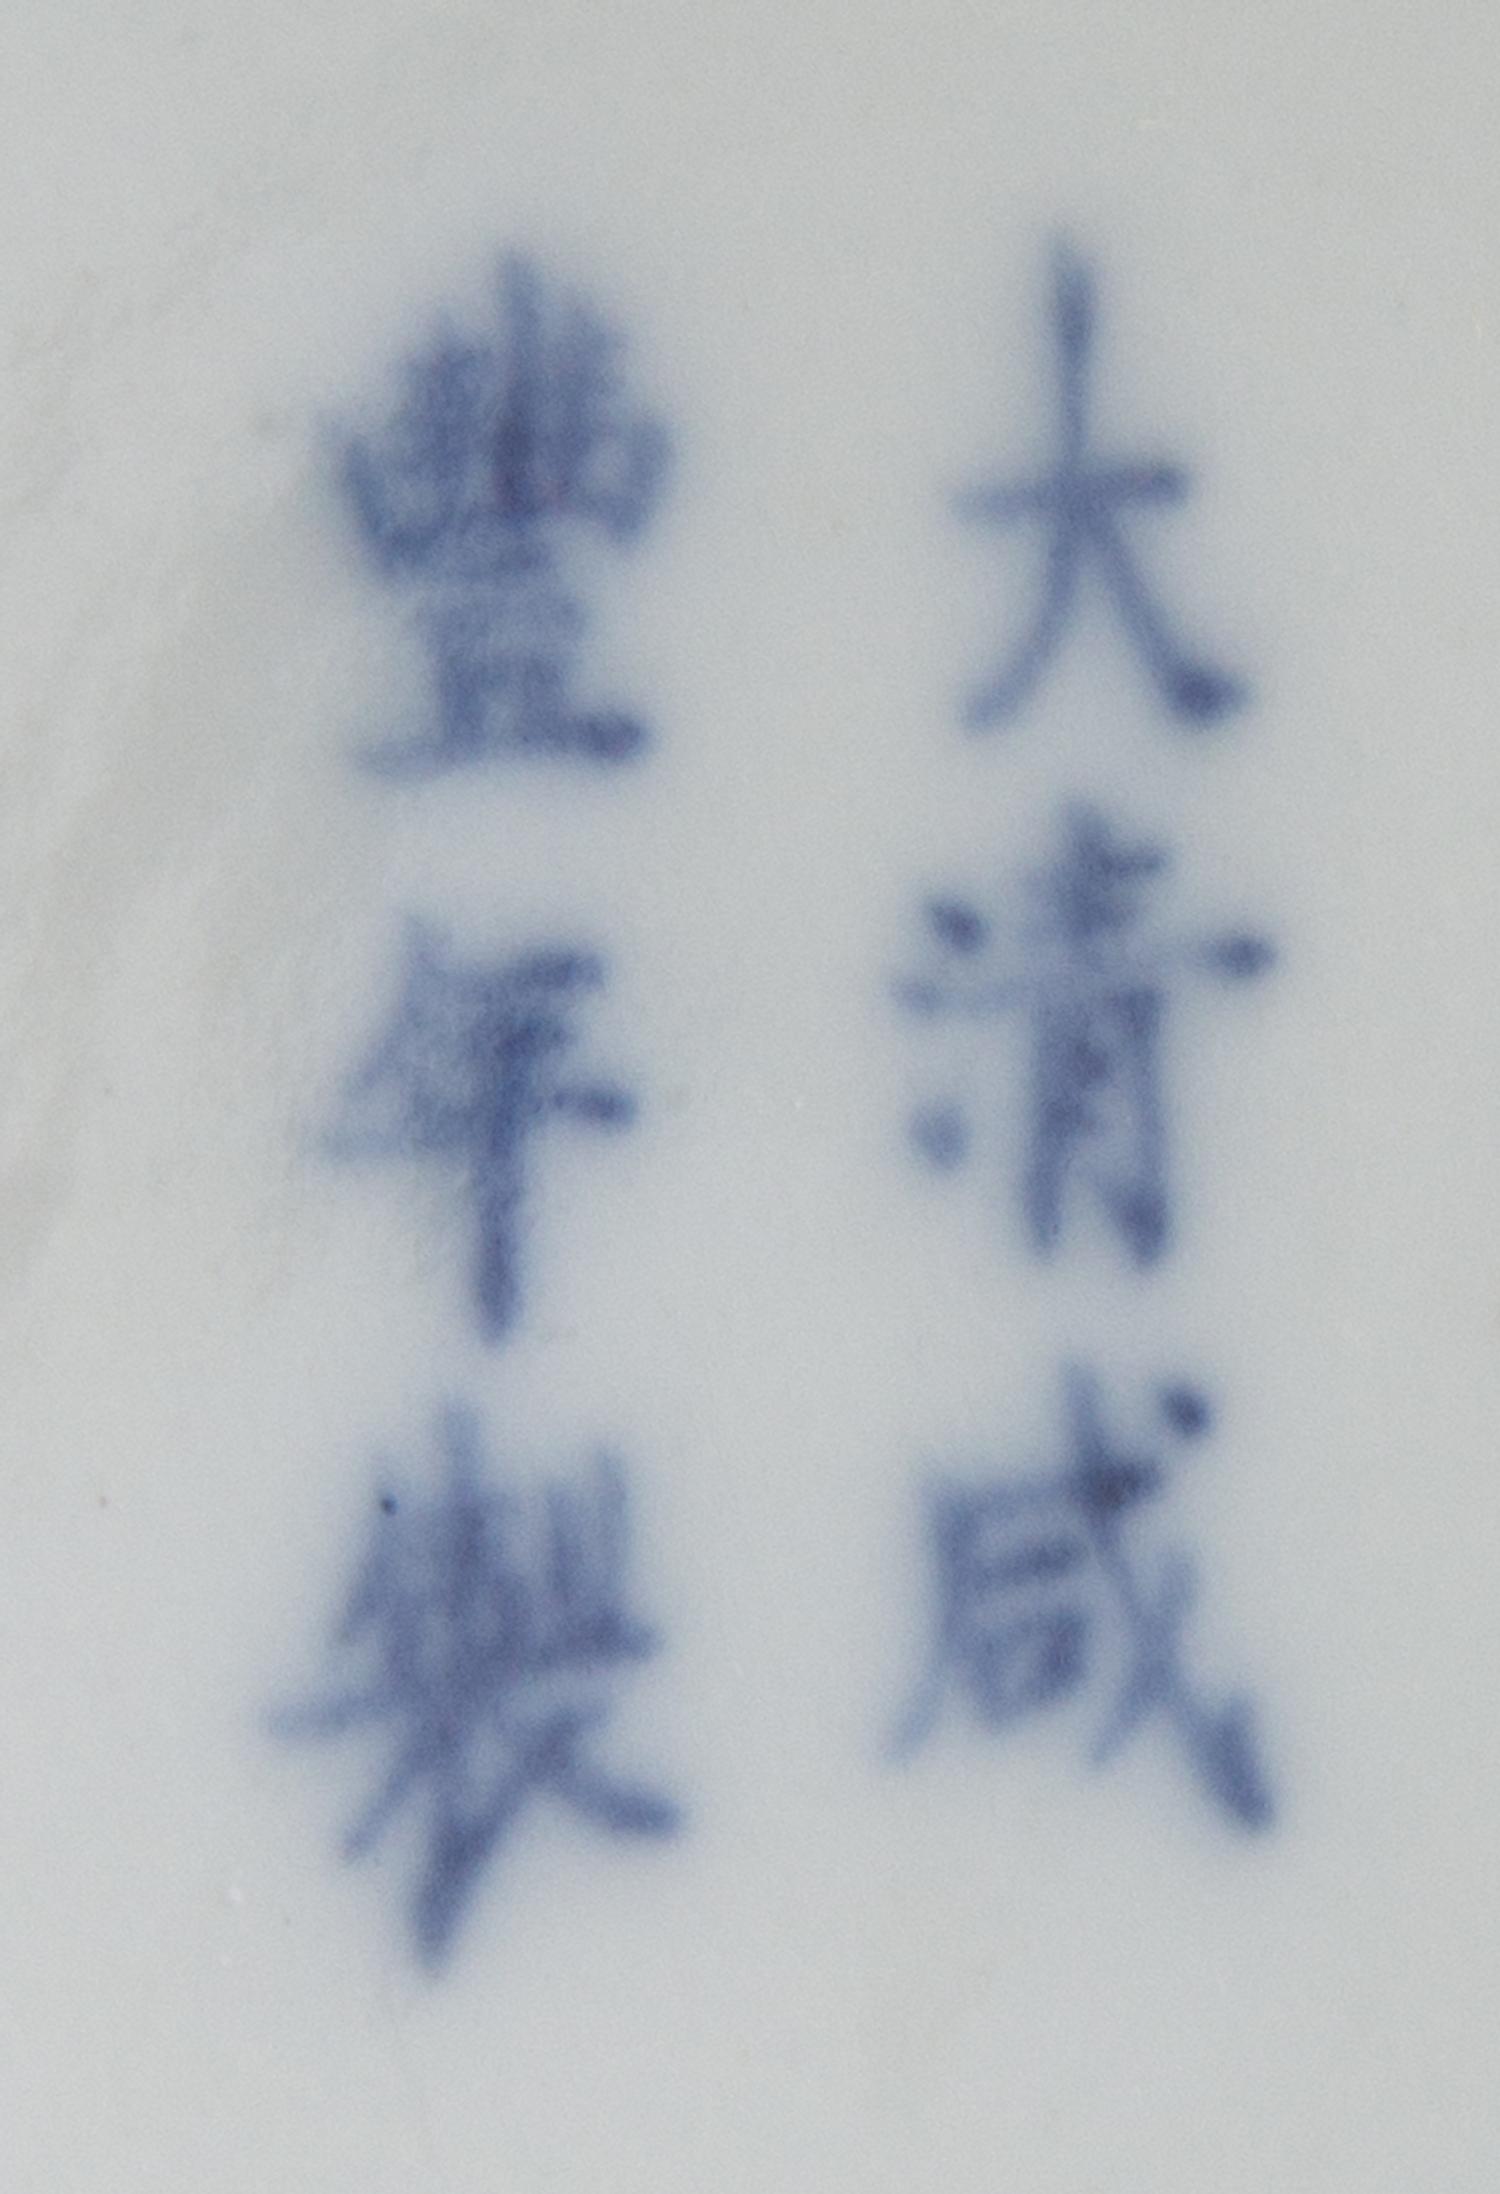 大清咸
豐年製